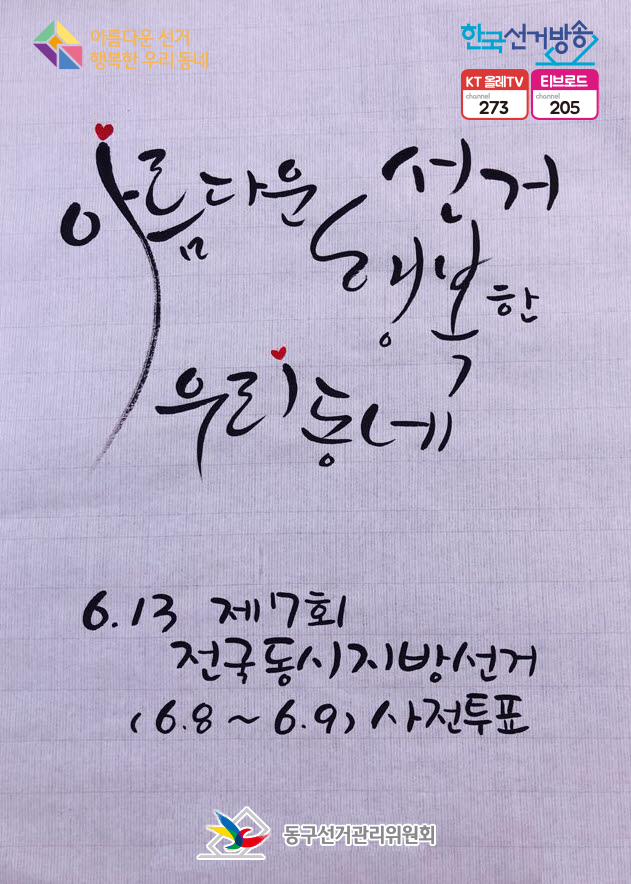 아름다운 선거
행복한 우리 동네
한국선거방송
KT 올레TV 티브로드
channel 273 channel 205
아름다운 선거
행복한
우리동네
6.13 제7회
전국동시지방선거
(6.8~6.9) 사전투표
동구선거관리위원회